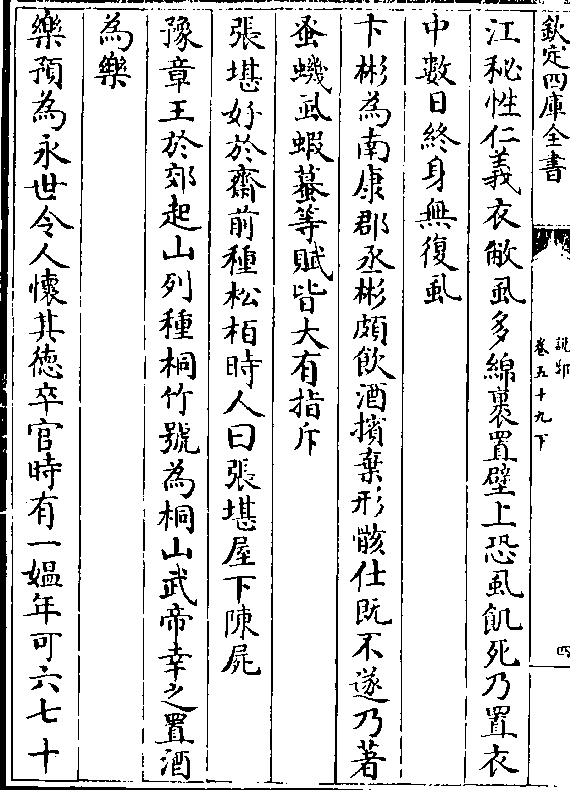 欽定四庫全書
說郛
卷五十九下
四
江秘性仁義衣敝虱多綿裹置壁上恐虱飢死乃置衣
中數日終身無復虱
卞彬為南康郡丞彬頗飲酒擯棄形骸仕既不遂乃著
蚤蟣虱蝦蟇等賦皆大有指斥
張堪好於齋前種松栢時人曰張堪屋下陳屍
豫章王於郊起山列種桐竹號為桐山武帝幸之置酒
為樂
樂預為永世令人懷其徳卒官時有一媼年可六七十